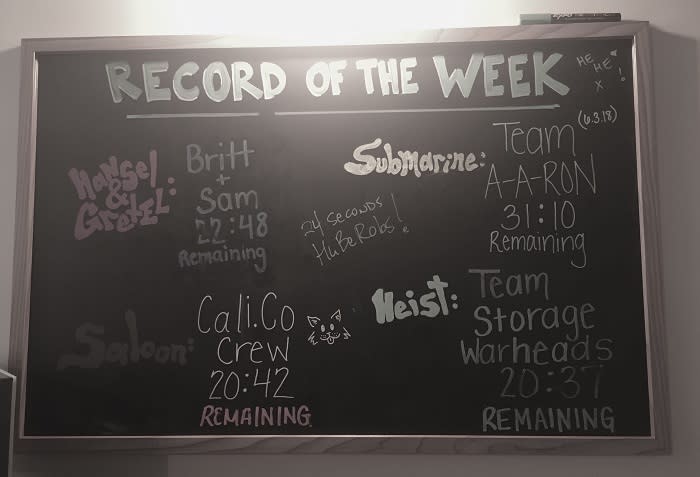 RECORD OF THE WEEK
HE
HE
X !
Hansel
&
Gretel:
Britt
+
Sam
22:48
Remaining
Submarine:
Team
(6.3.18)
A-A-RON
31:10
Remaining
24 seconds
HuBeRobs!
Saloon:
Cali.Co
Crew
20:42
REMAINING
Heist:
Team
Storage
Warheads
20:37
REMAINING